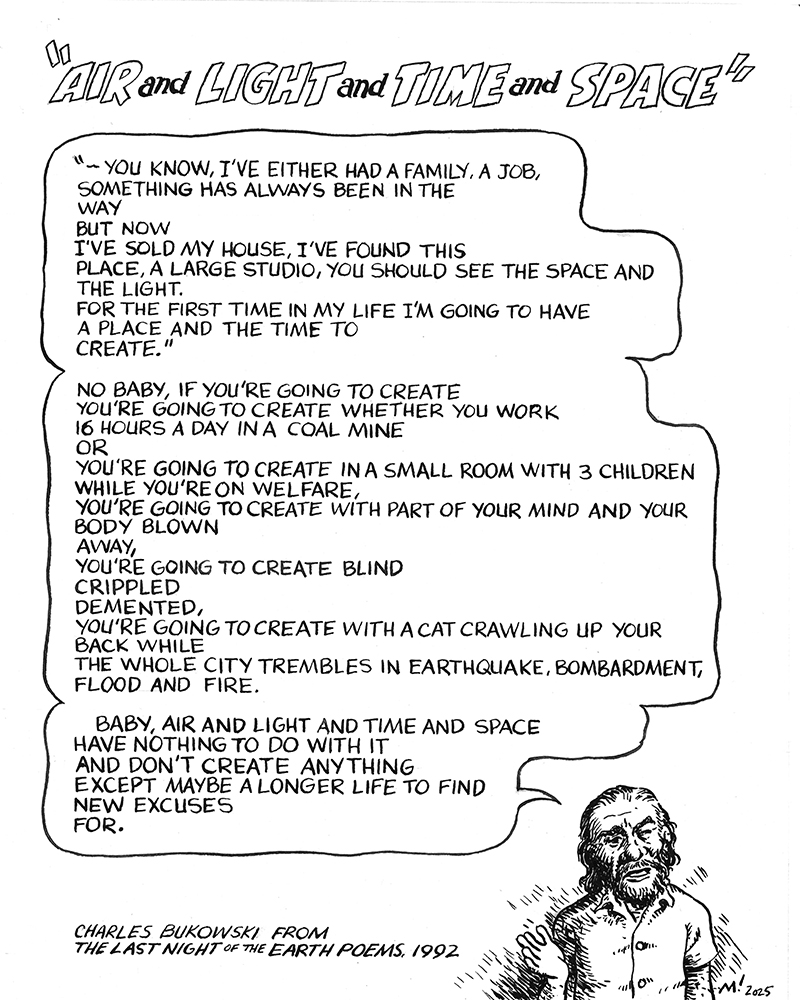 "AIR and LIGHT and TIME and SPACE"
"– YOU KNOW, I'VE EITHER HAD A FAMILY, A JOB,
SOMETHING HAS ALWAYS BEEN IN THE
WAY
BUT NOW
I'VE SOLD MY HOUSE, I'VE FOUND THIS
PLACE, A LARGE STUDIO, YOU SHOULD SEE THE SPACE AND
THE LIGHT.
FOR THE FIRST TIME IN MY LIFE I'M GOING TO HAVE
A PLACE AND THE TIME TO
CREATE."
NO BABY, IF YOU'RE GOING TO CREATE
YOU'RE GOING TO CREATE WHETHER YOU WORK
16 HOURS A DAY IN A COAL MINE
OR
YOU'RE GOING TO CREATE IN A SMALL ROOM WITH 3 CHILDREN
WHILE YOU'RE ON WELFARE,
YOU'RE GOING TO CREATE WITH PART OF YOUR MIND AND YOUR
BODY BLOWN
AWAY,
YOU'RE GOING TO CREATE BLIND
CRIPPLED
DEMENTED,
YOU'RE GOING TO CREATE WITH A CAT CRAWLING UP YOUR
BACK WHILE
THE WHOLE CITY TREMBLES IN EARTHQUAKE, BOMBARDMENT,
FLOOD AND FIRE.
BABY, AIR AND LIGHT AND TIME AND SPACE
HAVE NOTHING TO DO WITH IT
AND DON'T CREATE ANYTHING
EXCEPT MAYBE A LONGER LIFE TO FIND
NEW EXCUSES
FOR.
CHARLES BUKOWSKI FROM
THE LAST NIGHT OF THE EARTH POEMS, 1992
M! 2025